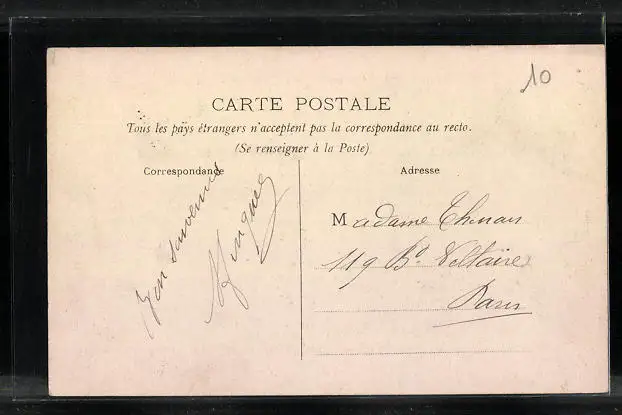 10
CARTE POSTALE
Tous les pays étrangers n'acceptent pas la correspondance au recto.
(Se renseigner à la Poste)
Correspondance
Adresse
Bon souvenir
Madame
119 Bd Voltaire
Paris